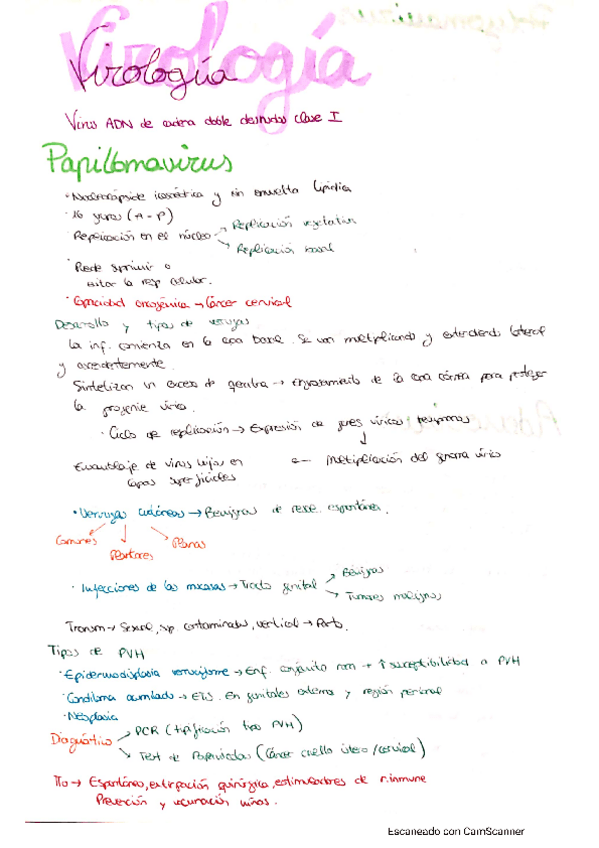 Virología
Virus ADN de cadena doble desnudos clase I
Papillomavirus
· Nucleocápside icosaédrica y sin envuelta lipídica
· 16 géneros (A - P)
· Replicación en el núcleo → Replicación vegetativa
→ Replicación basal
· Puede suprimir o
evitar la resp celular.
· Capacidad oncogénica → Cáncer cervical
Desarrollo y tipos de verrugas
La inf. comienza en la capa basal. Se van multiplicando y extendiendo lateral
y ascendentemente.
Sintetizan un exceso de queratina → engrosamiento de la capa córnea para proteger
la progenie vírica.
· Ciclo de replicación → Expresión de genes víricos tempranos
↓
Ensamblaje de virus hijos en ← Multiplicación del genoma vírico
capas superficiales
· Verrugas cutáneas → Benignas de espontánea.
Comunes Plantares Planas
· Infecciones de las mucosas → Tracto genital → Benignas
→ Tumores malignos
Transm → Sexual, sup. contaminadas, vertical → Parto.
Tipos de PVH
· Epidermodisplasia verruciforme → Enf. → ↑ susceptibilidad a PVH
· Condiloma acuminado → ETS. En genitales externos y región perianal
· Neoplasia
Diagnóstico → PCR (tipificación tipo PVH)
→ Test de Papanicolau (Cáncer cuello útero/cervical)
Tto → Espontáneo, extirpación quirúrgica, estimuladores de r. inmune
Prevención y vacunación niños.
Escaneado con CamScanner